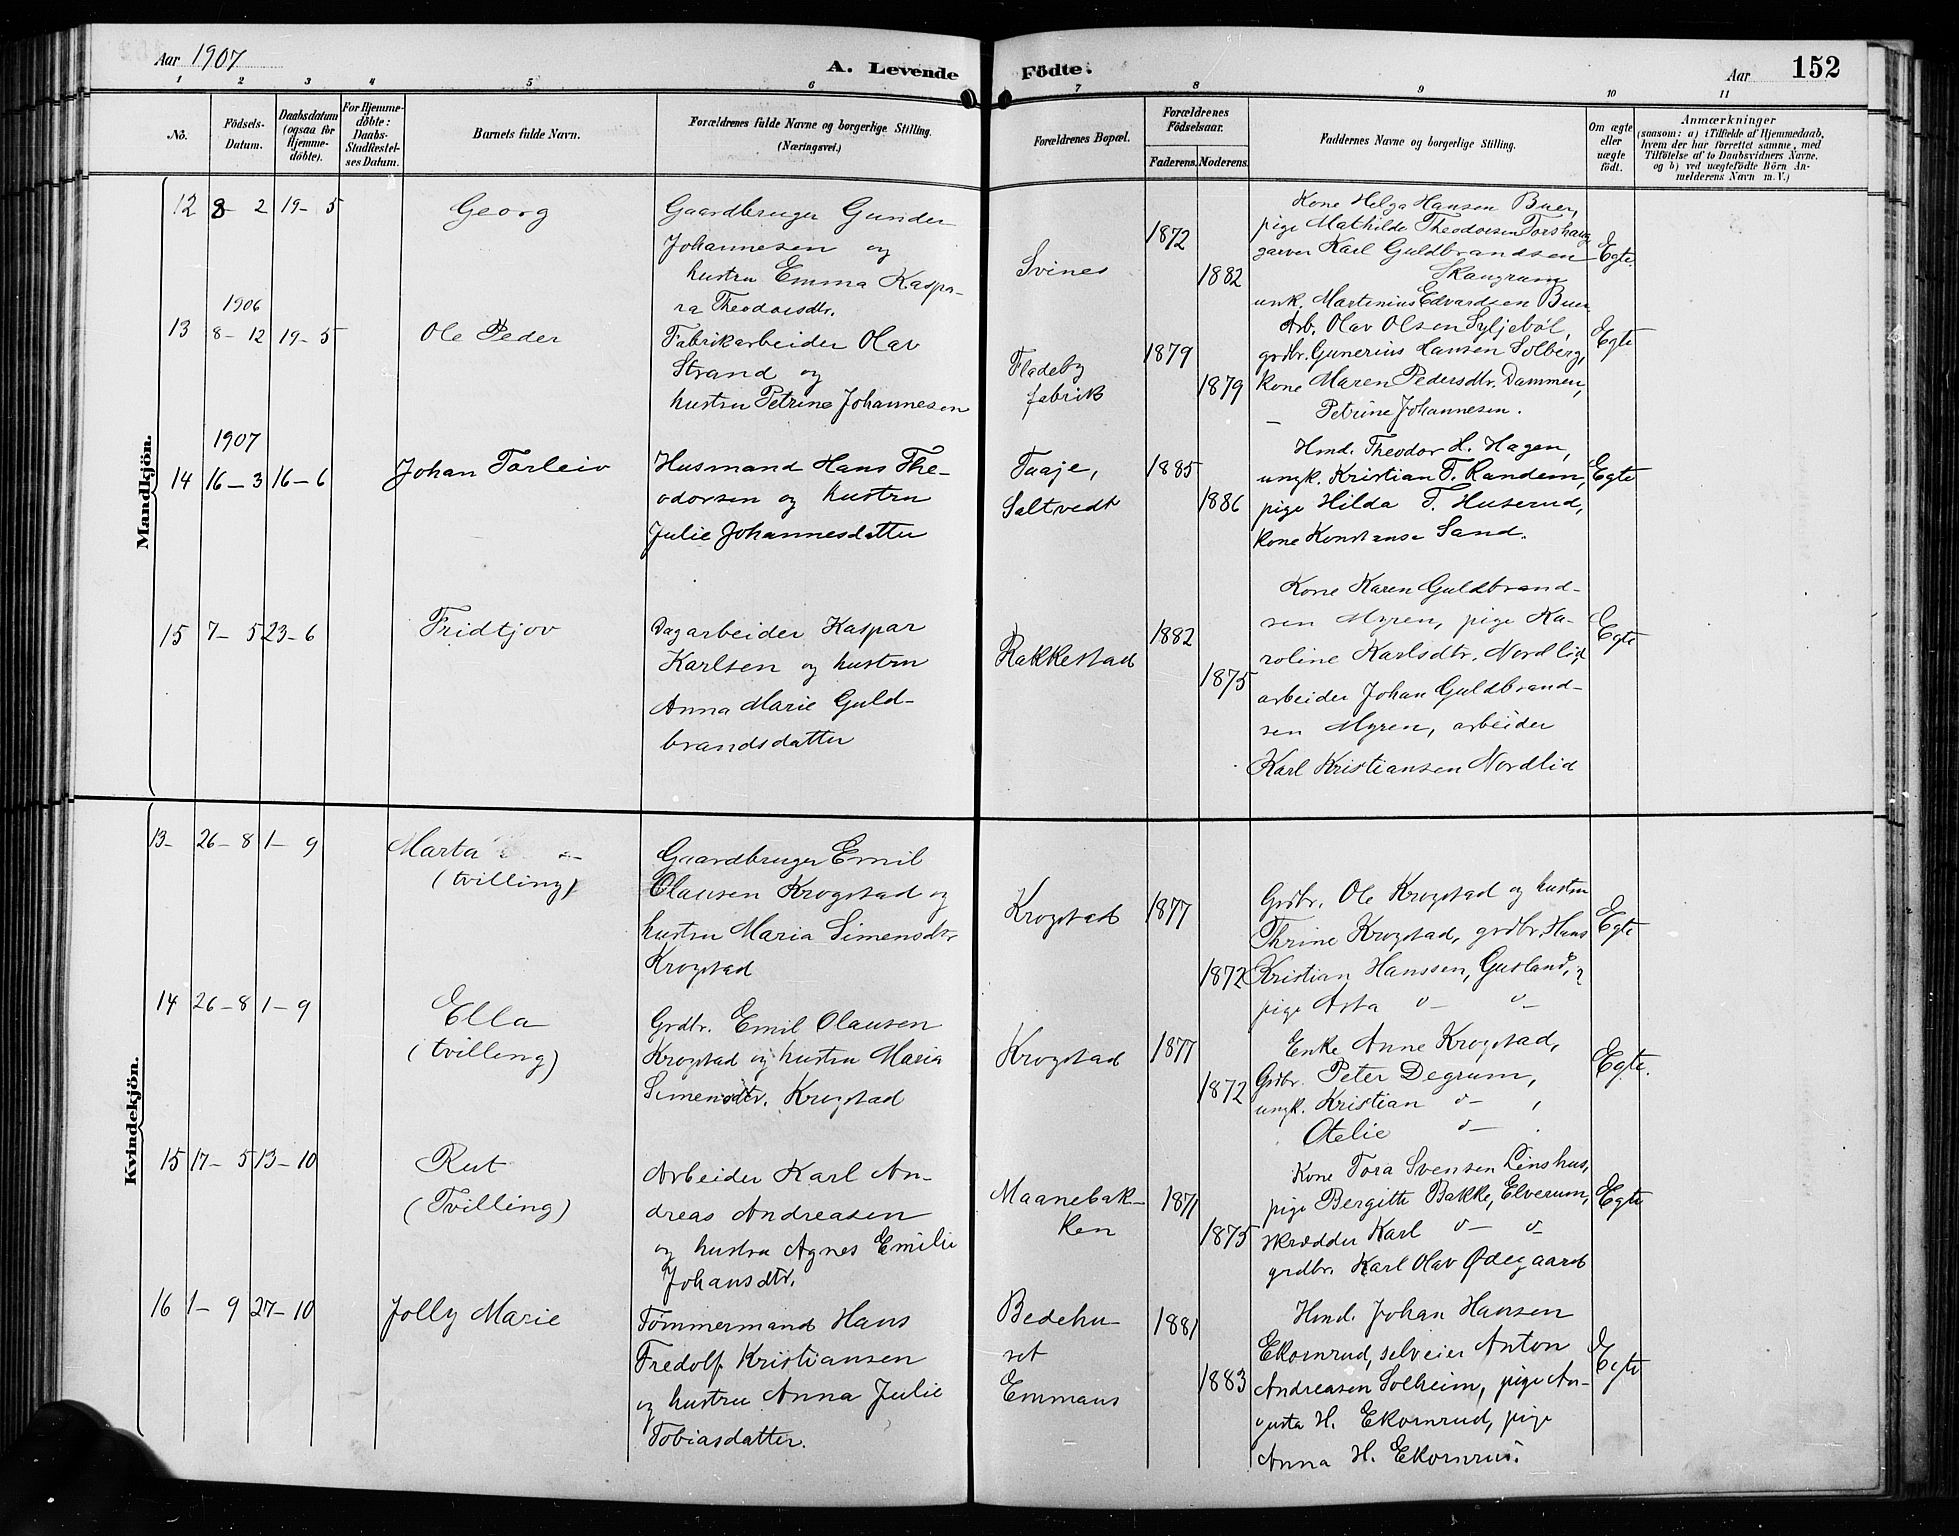 Aar 1907
A. Levende Födte.
Aar
152
1 2 3 4 5 6 7 8 9 10 11
No.
Födsels-
Datum.
Daabsdatum
(ogsaa for
Hjemme-
döbte).
For Hjemme-
döbte:
Daabs-
Stadfæstel-
ses Datum.
Barnets fulde Navn.
Forældrenes fulde Navne og borgerlige Stilling.
(Næringsvei.)
Forældrenes Bopæl.
Forældrenes
Födselsaar.
Faderens. Moderens.
Faddernes Navne og borgerlige Stilling.
Om ægte
eller
uægte
födt.
Anmærkninger
(saasom: a) i Tilfælde af Hjemmedaab,
hvem der har forrettet samme, med
Tilföielse af to Daabsvidners Navne,
og b) ved uægtefödte Börn An-
melderens Navn m. V.)
Mandkjön.
12 8 - 2 19 - 5
Georg
Gaardbruger Gunder
Johannesen og
hustru Emma Kaspa-
ra Theodorsdtr.
Svines
1872
1882
Kone Helga Hansen Buer,
pige Mathilde Theodorsen Torshaug
garver Karl Guldbrandsen
Skaugrum
unk. Martinius Edvardsen Buer
Egte.
1906
13 8 - 12 19 - 5
Ole Peder
Fabrikarbeider Olav
Strand og
hustru Petrine Johannesen
Fladeby
fabrik
1879
1879
Arb. Olav Olsen Syljeböl,
grdbr. Gunerius Hansen Solberg,
kone Maren Pedersdtr. Dammen,
- Petrine Johannesen.
Egte
1907
14 16 - 3 16 - 6
Johan Torleiv
Husmand Hans The-
odorsen og hustru
Julie Johannesdatter
Taaje,
Saltvedt
1885
1886
Hmd. Theodor H. Hagen,
ungk. Kristian T. Randem,
pige Hilda T. Huserud,
kone Konstanse Sand.
Egte
15 7 - 5 23 - 6
Fridtjov
Dagarbeider Kaspar
Karlsen og hustru
Anna Marie Guld-
brandsdatter
Rakkestad
1882
1875
Kone Karen Guldbrand-
sen Myren, pige Ka-
roline Karlsdtr. Nordlid,
arbeider Johan Guldbrand-
sen Myren, arbeider
Karl Kristiansen Nordlid
Egte
Kvindekjön.
13 - 26 - 8 1 - 9
Marta
(tvilling)
Gaardbruger Emil
Olausen Krogstad og
hustru Maria Simensdtr.
Krogstad
Krogstad
1877
1872
Grdbr. Ole Krogstad og hustru
Thrine Krogstad, grdbr. Hans
Kristian Hanssen, Gusland,
pige Asta o- o-
Egte
14 26 - 8 1 - 9
Ella
(tvilling)
Grdbr. Emil Olausen
Krogstad og hustru Maria
Simensdtr. Krogstad
Krogstad
1877
1872
Enke Anne Krogstad,
Grdbr. Peter Degrum,
ungk. Kristian o- ,
Otelie o- .
Egte.
15 17 - 5 13 - 10
Rut
(Tvilling)
Arbeider Karl An-
dreas Andreasen
og hustru Agnes Emilie
Johansdtr.
Maanebak-
ken
1871
1875
Kone Tora Svensen Linshus,
pige Bergitte Bakke, Elverum,
skrædder Karl o- o-
grdbr. Karl Olav Ødegaard
Egte
16 1 - 9 27 - 10
Jolly Marie
Tømmermand Hans
Fredolf Kristiansen
og hustru Anna Julie
Tobiasdatter.
Bedehu-
set
Emmaus
1881
1883
Hmd. Johan Hansen
Ekornrud, selveier Anton
Andreasen Solheim, pige Au-
gusta H. Ekornrud, pige
Anna H. Ekornrud.
Egte